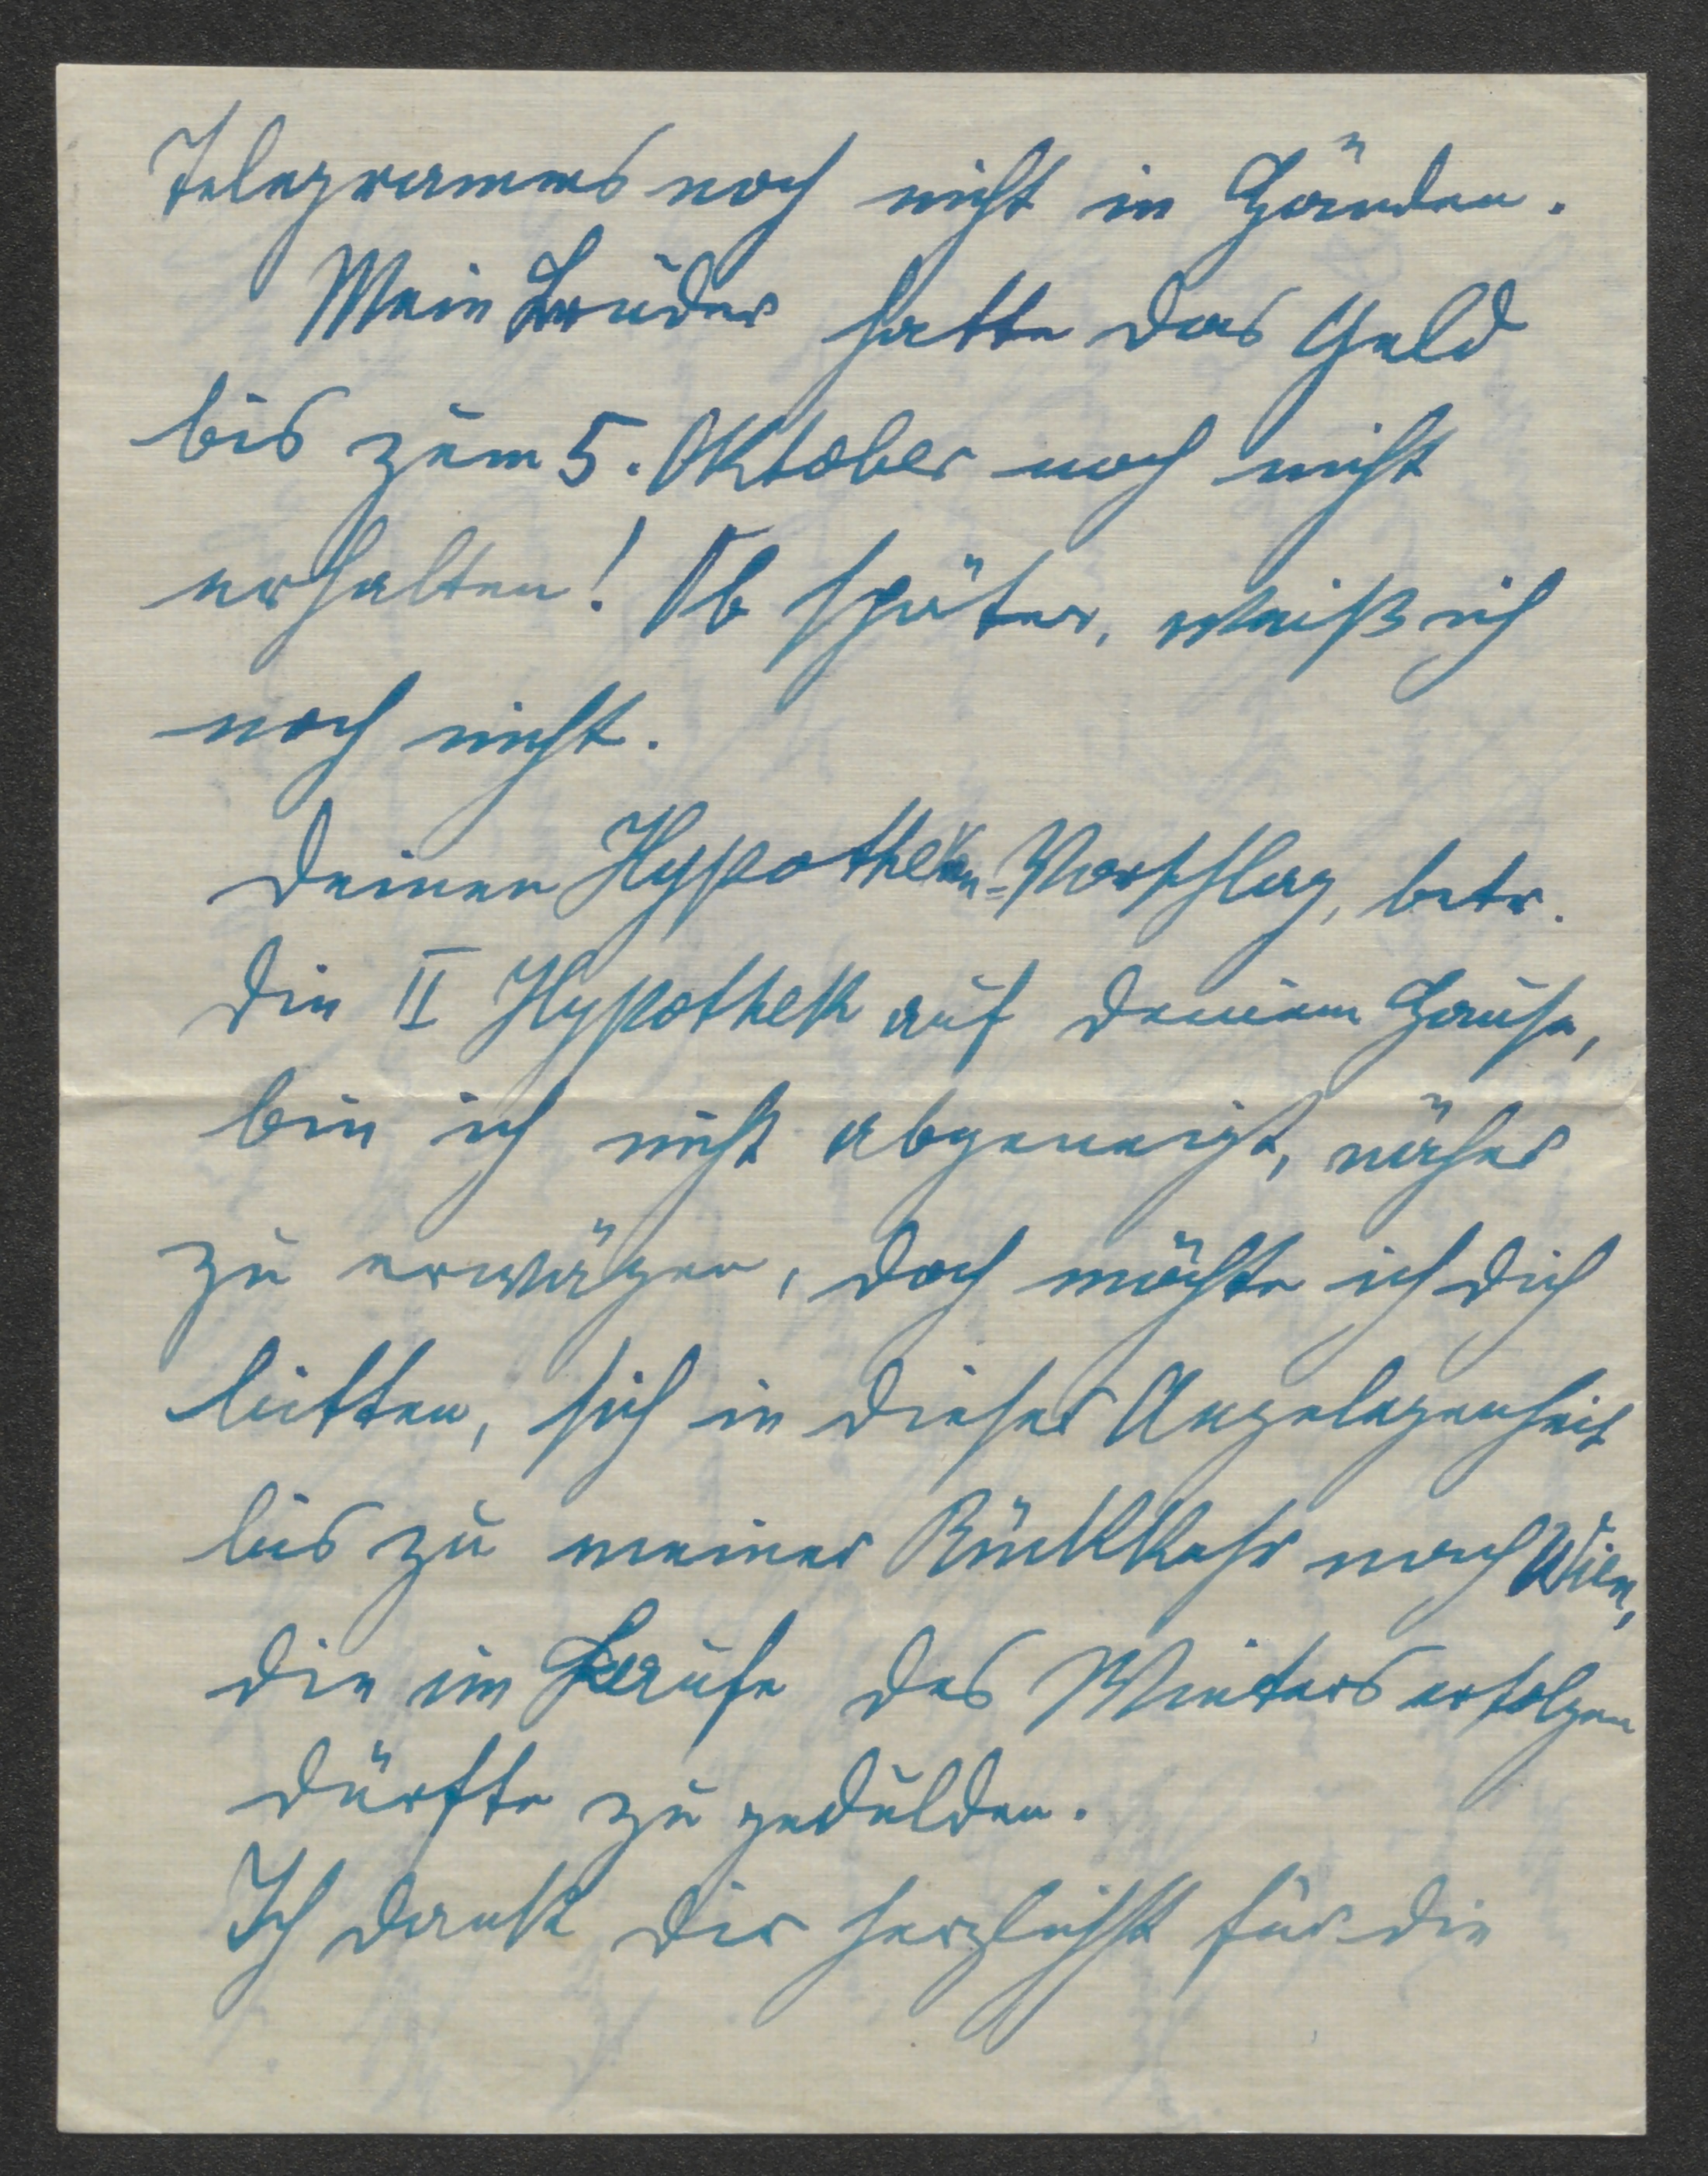 Telegrammes noch nicht in Händen.
Mein Bruder hatte das Geld
bis zum 5. Oktober noch nicht
erhalten! Ob später, weiß ich
noch nicht.
Deinen Hypotheken-Vorschlag, betr.
die II Hypothek auf deinem Hause,
bin ich nicht abgeneigt, näher
zu erwägen, doch möchte ich dich
bitten, sich in dieser Angelegenheit
bis zu meiner Rückkehr nach Wien,
die im Laufe des Winters erfolgen
dürfte zu gedulden.
Ich dank dir herzlichst für die